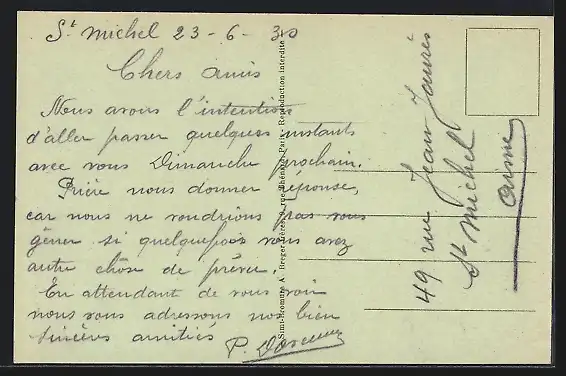 St michel 23-6-30
Chers amis
Nous avons l'intention
d'aller passer quelques instants
avec vous Dimanche prochain.
Prière nous donner réponse,
car nous ne voudrions pas vous
gêner si quelquefois vous avez
autre chose de prévu.
En attendant de vous voir
nous vous adressons nos bien
sincères amitiés
P.
49 rue Jean Jaurès
St Michel
Aisne
Simi-Bromure A. Breger Frères, rue Thénard, Paris - Reproduction Interdite